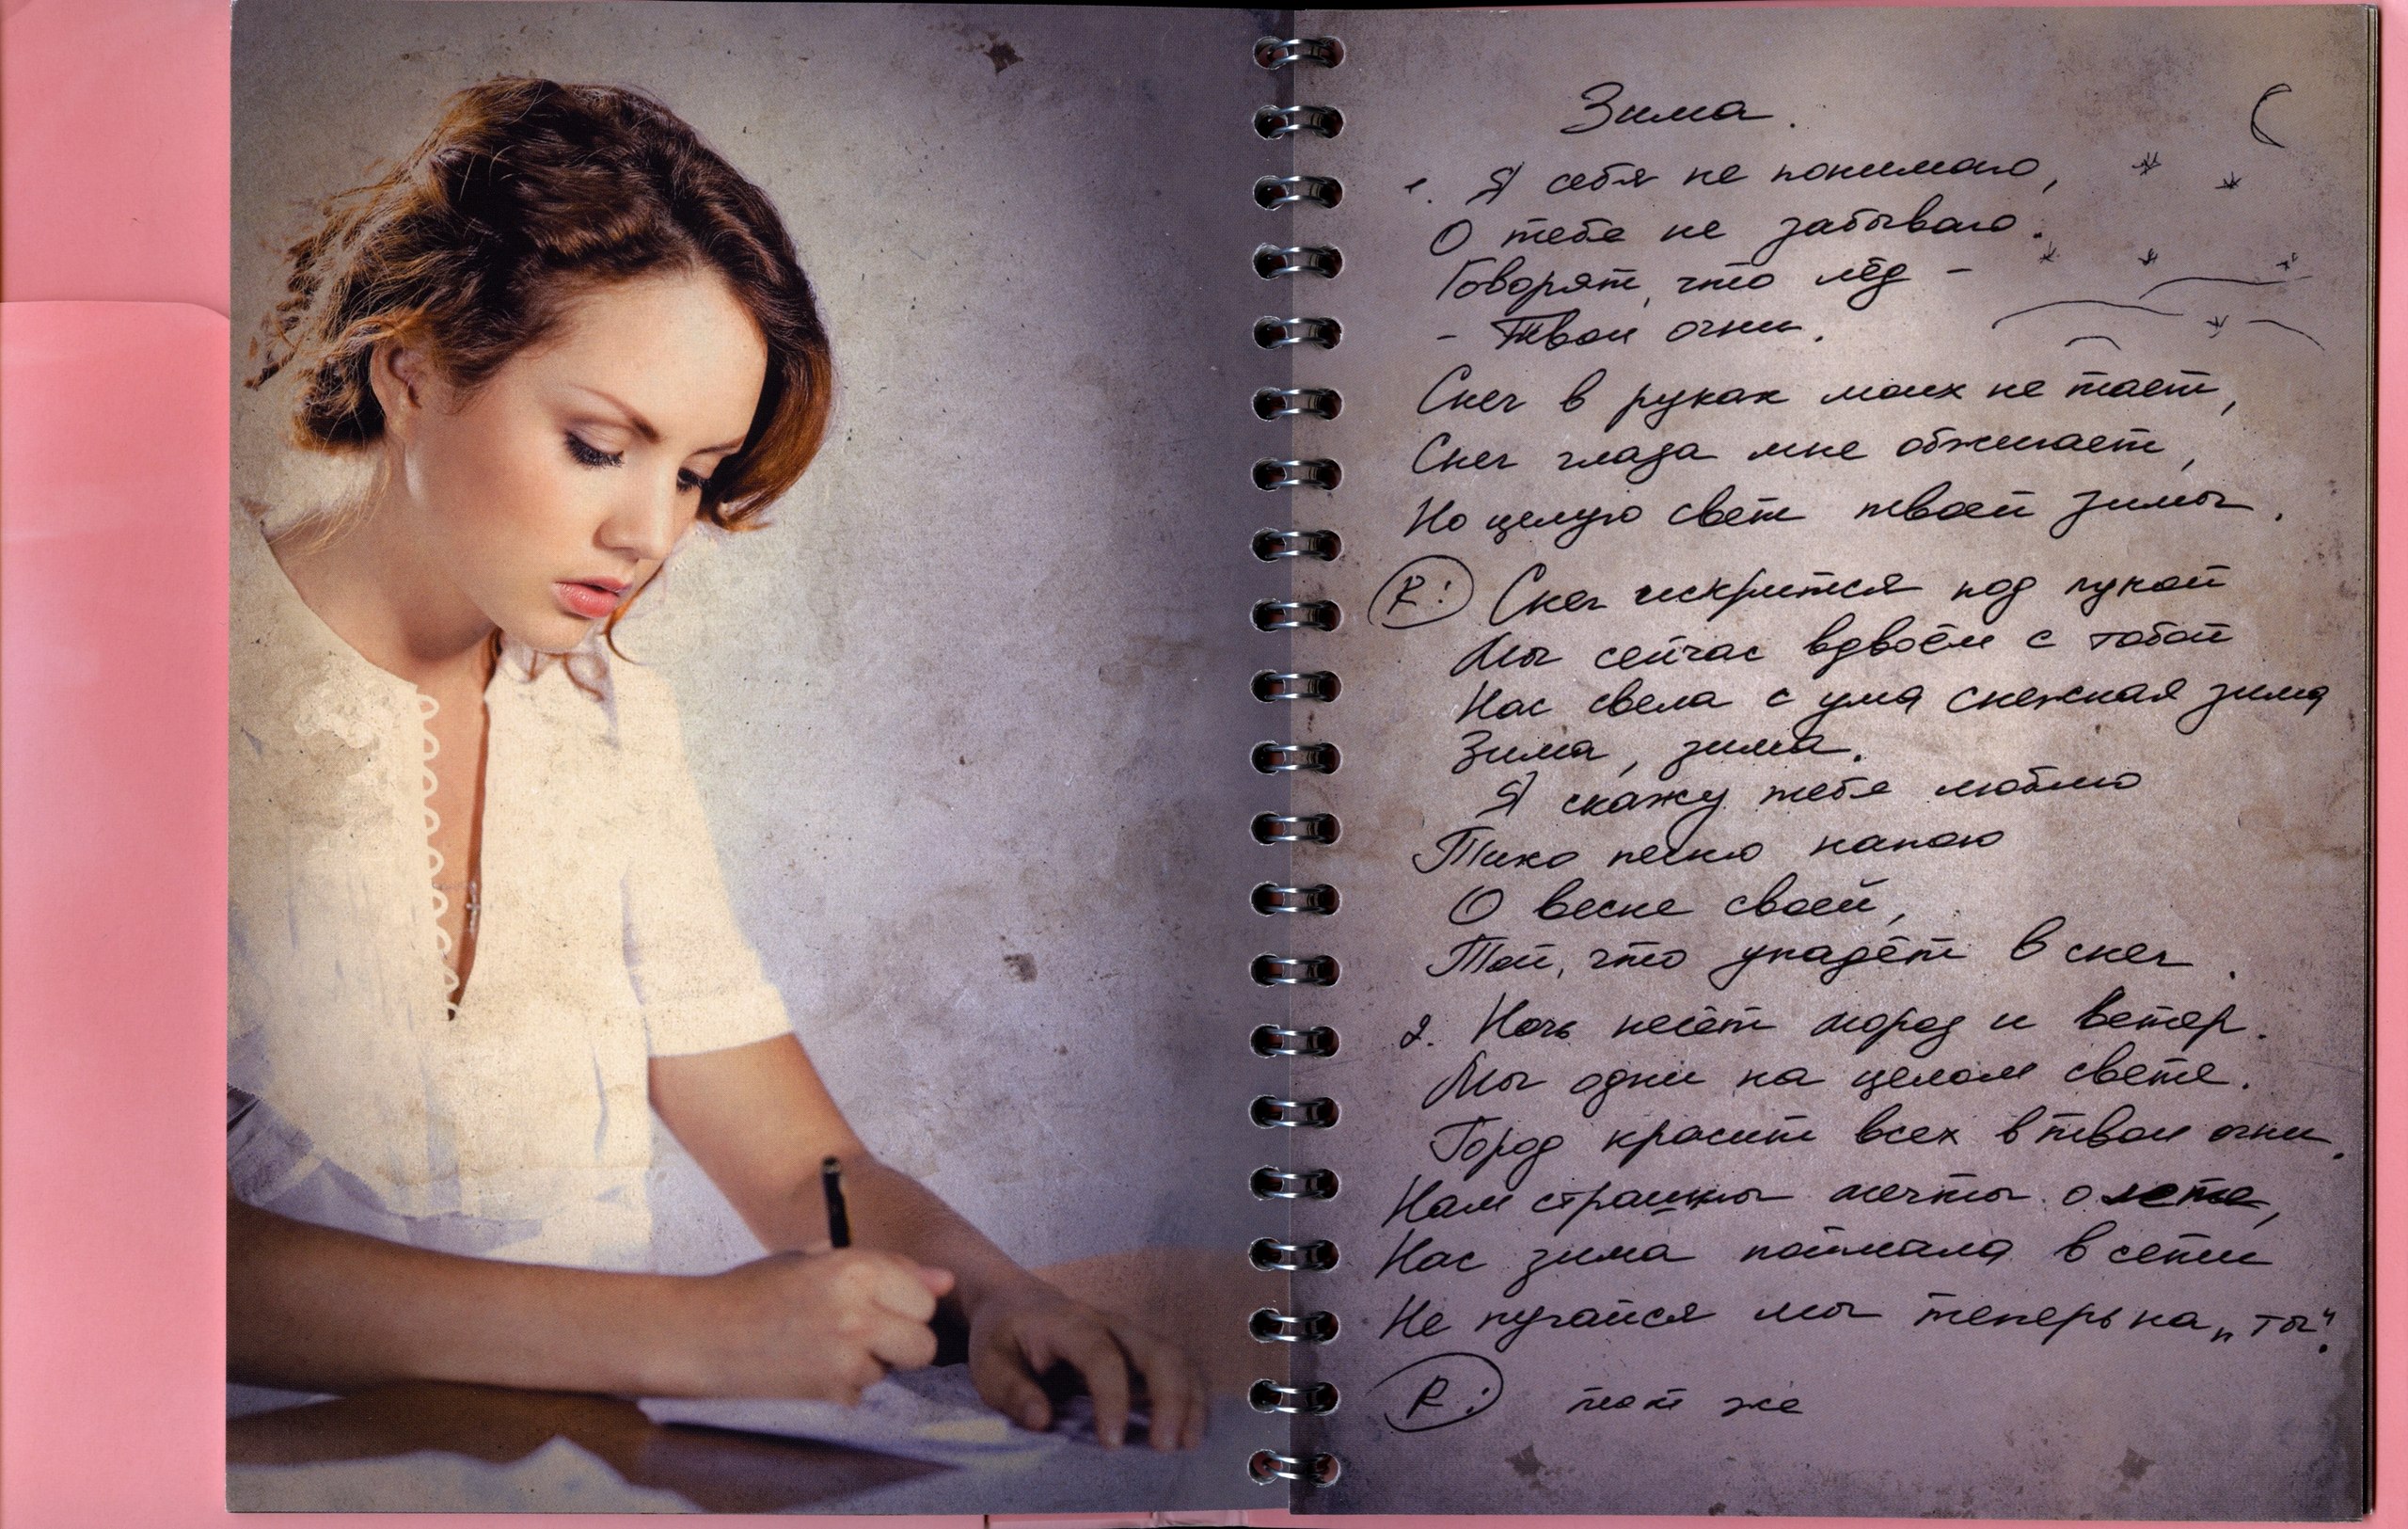 Зима.
1. Я себя не понимаю,
О тебе не забываю.
Говорят, что лёд -
- Твои огни.
Снег в руках моих не тает,
Снег глаза мне обжигает,
Но целую свет твоей зимы.
R: Снег искрится под луной
Мы сейчас вдвоём с тобой
Нас свела с ума снежная зима
Зима, зима.
Я скажу тебе люблю
Тихо песню напою
О весне своей,
Той, что упадёт в снег.
2. Ночь несёт мороз и ветер.
Мы одни на целом свете.
Город красит всех в твои огни.
Нам страшны мечты о лете,
Нас зима поймала в сети
Не пугайся мы теперь на „ты“.
R: тот же